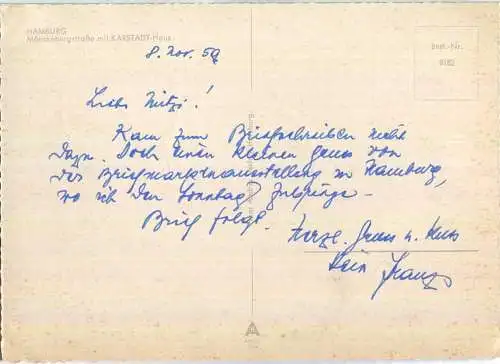 HAMBURG
Mönckebergstraße mit KARSTADT-Haus
Best.-Nr.
8. Nov. 59
Liebe Mitzi!
Kam zum Briefschreiben nicht
dazu. Doch einen kleinen Gruss von
der Briefmarkenausstellung in Hamburg,
wo ich den Sonntag zubringe.
Brief folgt.
Herzl. Gruss u. Kuss
Dein Franz
A